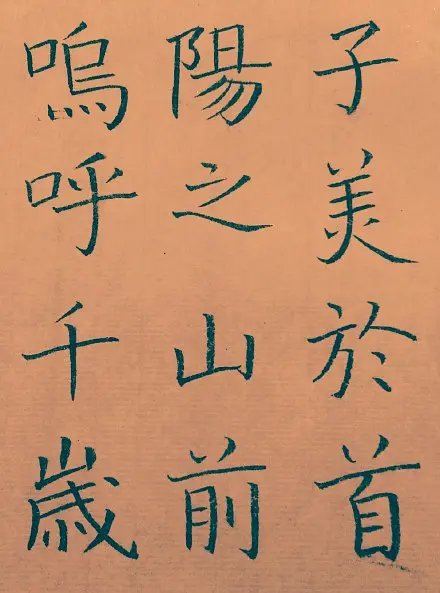 子美於首
陽之山前
嗚呼千歲